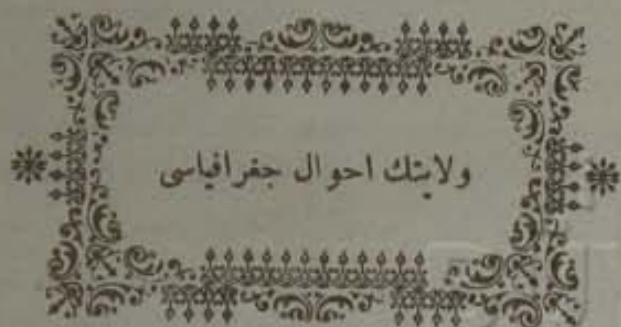 ولایتك احوال جغرافیاسی